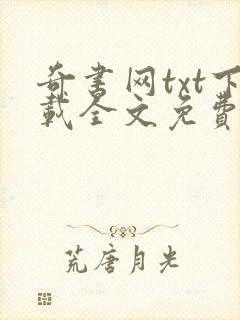 奇书网txt下
载全文免费
荒唐月光